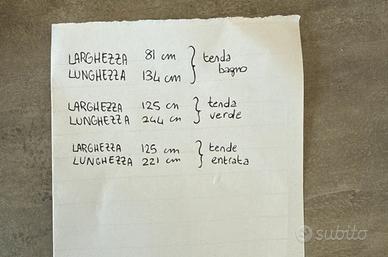 LARGHEZZA 81 cm } tenda
LUNGHEZZA 134 cm } bagno
LARGHEZZA 125 cm } tenda
LUNGHEZZA 244 cm } verde
LARGHEZZA 125 cm } tende
LUNGHEZZA 221 cm } entrata
subito